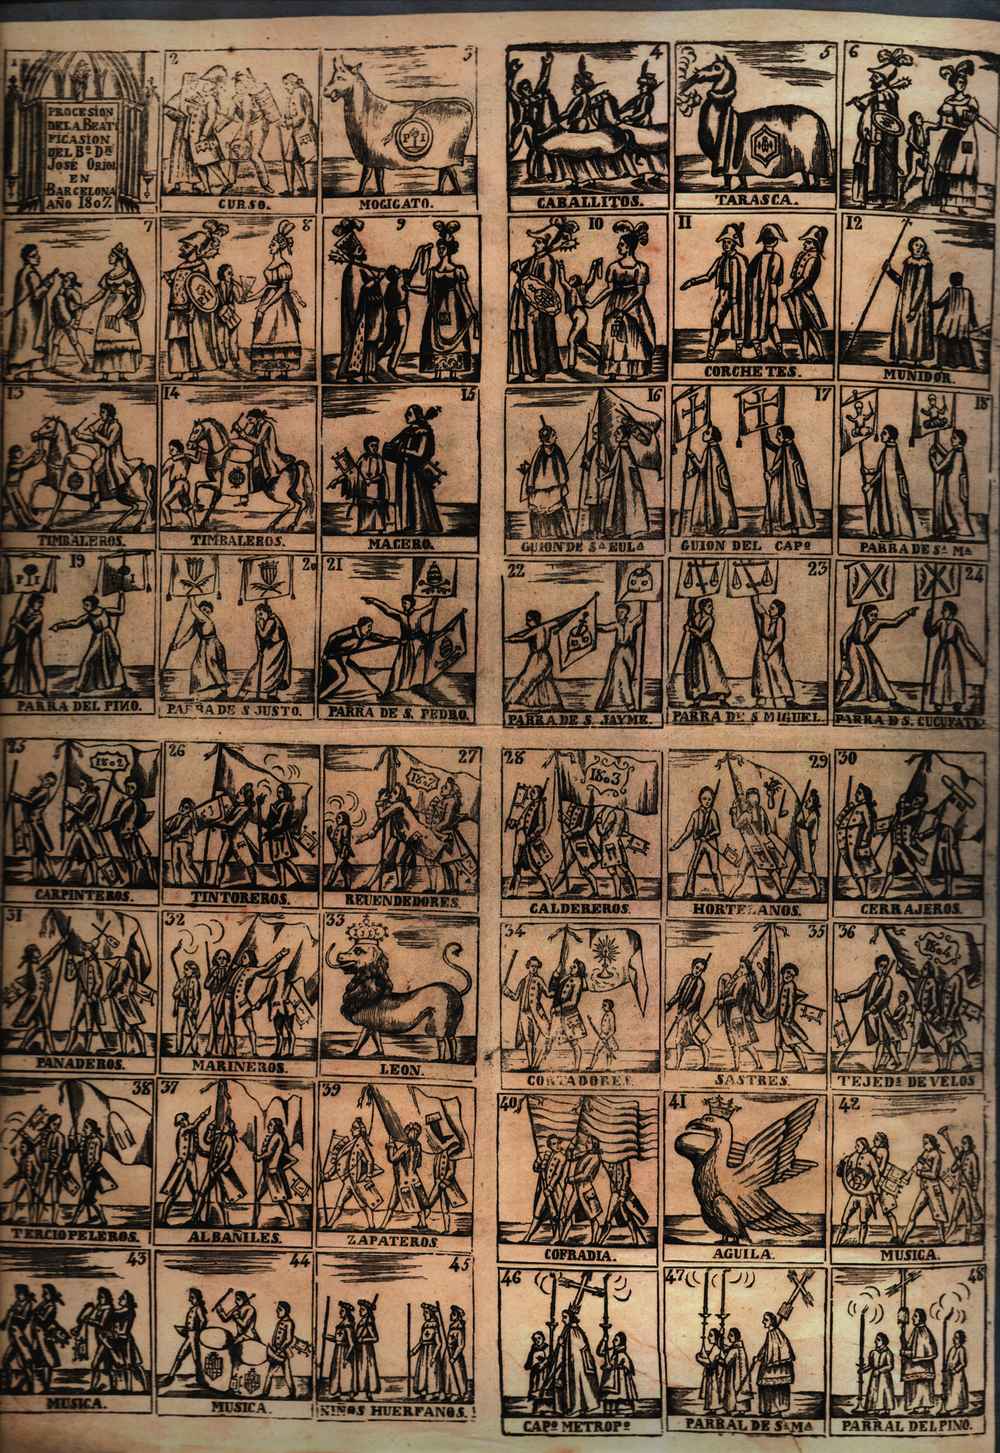 1
PROCESION
DE LA BEATI
FICASION
DEL Bº. Dº.
JOSE ORIOL
EN
BARCELONA
AÑO 1807.
2
CURSO.
3
P I
MOGIGATO.
4
CABALLITOS.
5
TARASCA.
6
7
8
P I
9
10
11
CORCHETES.
12
MUNIDOR.
13
TIMBALEROS.
14
TIMBALEROS.
15
MACERO.
16
GUION DE Sª EULª
17
GUION DEL CAPº
18
PARRA DE Sª Mª
19
P I
PARRA DEL PINO.
20
PARRA DE S JUSTO.
21
PARRA DE S. PEDRO.
22
PARRA DE S. JAYME.
23
PARRA DE S MIGUEL.
24
PARRA D S. CUCUFATE
25
1802
CARPINTEROS.
26
TINTOREROS.
27
REUENDEDORES.
28
1803
CALDEREROS.
29
HORTELANOS.
30
CERRAJEROS.
31
PANADEROS.
32
MARINEROS.
33
LEON.
34
CORTADORES.
35
SASTRES.
36
1804
TEJEDS. DE VELOS
38
TERCIOPELEROS.
37
ALBAÑILES.
39
ZAPATEROS
40
COFRADIA.
41
AGUILA.
42
MUSICA.
43
MUSICA.
44
MUSICA.
45
NIÑOS HUERFANOS.
46
CAPº METROPº
47
PARRAL DE Sª Mª
48
PARRAL DEL PINO.